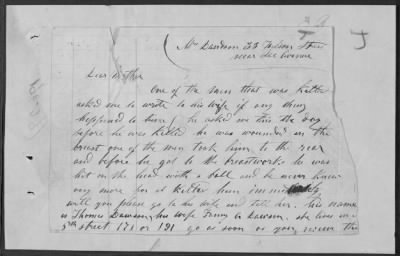 Mrs Dawson 23 Street
near Avenue
Dear Mother
One of the men that was killed
asked me to write to his wife if any thing
happened to him he asked me this the day
before he was killed he was wounded in the
breast one of the men took him to the rear
and before he got to the breastworks he was
hit on the head with a ball and he never knew
any more for it killed him immediately
will you please go to his wife and tell her. his name
is Thomas Dawson, his wife Fanny Dawson. she lives in
5th street 171 or 191 go as soon as you receive this